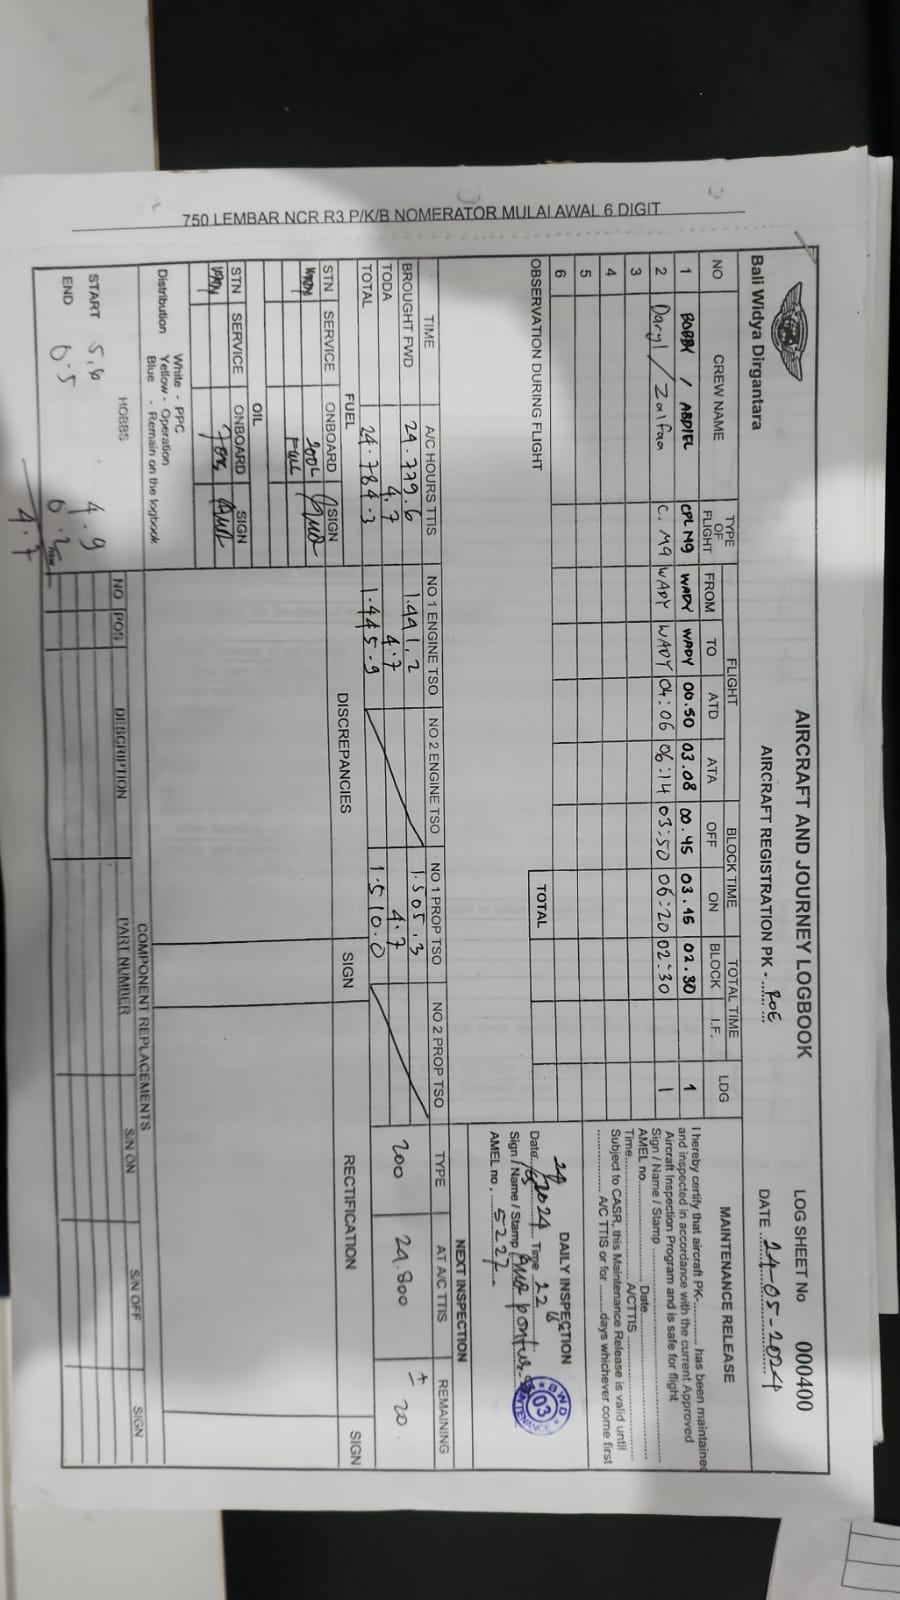 750 LEMBAR NCR R3 P/K/B NOMERATOR MULAI AWAL 6 DIGIT
Bali Widya Dirgantara
AIRCRAFT AND JOURNEY LOGBOOK
AIRCRAFT REGISTRATION PK - ROE
LOG SHEET No 000400
DATE 24-05-2024
NO CREW NAME TYPE OF FLIGHT FLIGHT BLOCK TIME TOTAL TIME LDG
FROM TO ATD ATA OFF ON BLOCK I.F.
1 BOBBY / ABDIEL CPL M9 WADY WADY 00.50 03.08 00.45 03.15 02.30 1
2 Daryl / Zalfaa C. M9 WADY WADY 04:06 06:14 03:50 06:20 02:30 1
3
4
5
6
OBSERVATION DURING FLIGHT
TOTAL
MAINTENANCE RELEASE
I hereby certify that aircraft PK-.......... has been maintained
and inspected in accordance with the current Approved
Aircraft Inspection Program and is safe for flight
Sign / Name / Stamp
AMEL no. Date
Time A/CTTIS
Subject to CASR, this Maintenance Release is valid until
A/C TTIS or for ........days whichever come first
DAILY INSPECTION
Date 24/2024 Time 22
Sign / Name / Stamp
BWD
03
AMEL no. 5227
TIME A/C HOURS TTIS NO 1 ENGINE TSO NO 2 ENGINE TSO NO 1 PROP TSO NO 2 PROP TSO
BROUGHT FWD 24.779.6 1.441,2 1.505,3
TODA 4,7 4.7 4.7
TOTAL 24.784.3 1.445.9 1.510.0
NEXT INSPECTION
TYPE AT A/C TTIS REMAINING
200 24.800 ± 20.
FUEL
STN SERVICE ONBOARD SIGN
WADY 200L
FULL
OIL
STN SERVICE ONBOARD SIGN
WADY
DISCREPANCIES SIGN RECTIFICATION SIGN
Distribution White - PPC
Yellow - Operation
Blue - Remain on the logbook
HOBBS
START 5,6 4.9
END 0.5 0.2
4.7
COMPONENT REPLACEMENTS
NO POS DESCRIPTION PART NUMBER S/N ON S/N OFF SIGN